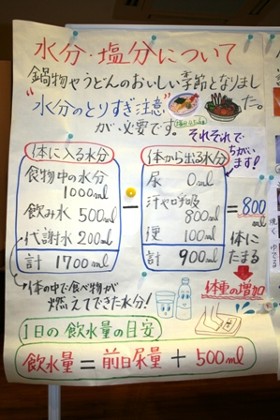 水分・塩分について
鍋物やうどんのおいしい季節となりました。
"水分のとりすぎ注意"
が必要です。
それぞれで
ちがいます!
体に入る水分
食物中の水分
1000ml
飲み水 500ml
代謝水 200ml
計 1700ml
-
体から出る水分
尿 0ml
汗や呼吸
800ml
便 100ml
計 900ml
= 800ml
体に
たまる
体重の増加
体の中で食べ物が
燃えてできた水分!
1日の飲水量の目安
飲水量 = 前日尿量 + 500ml